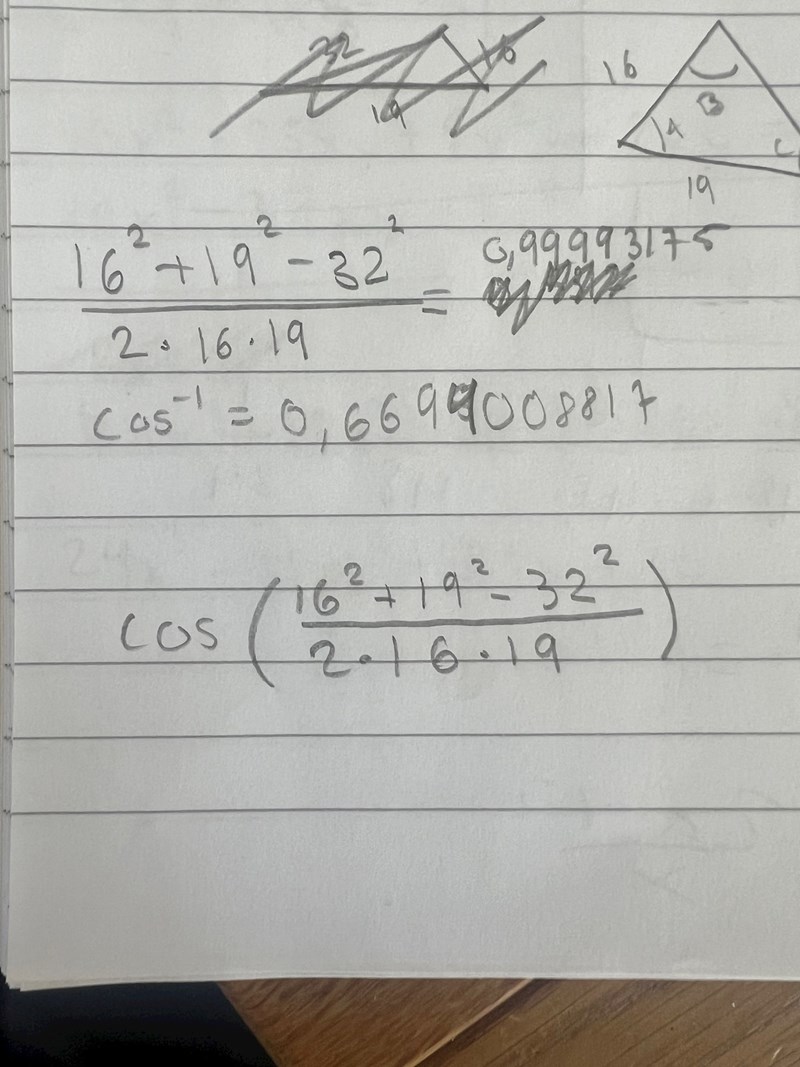 32 16
19
16 B A C
19
16² + 19² - 32² / 2 · 16 · 19 = 0,99993175
cos⁻¹ = 0,66991008817
cos ( 16² + 19² - 32² / 2 · 16 · 19 )